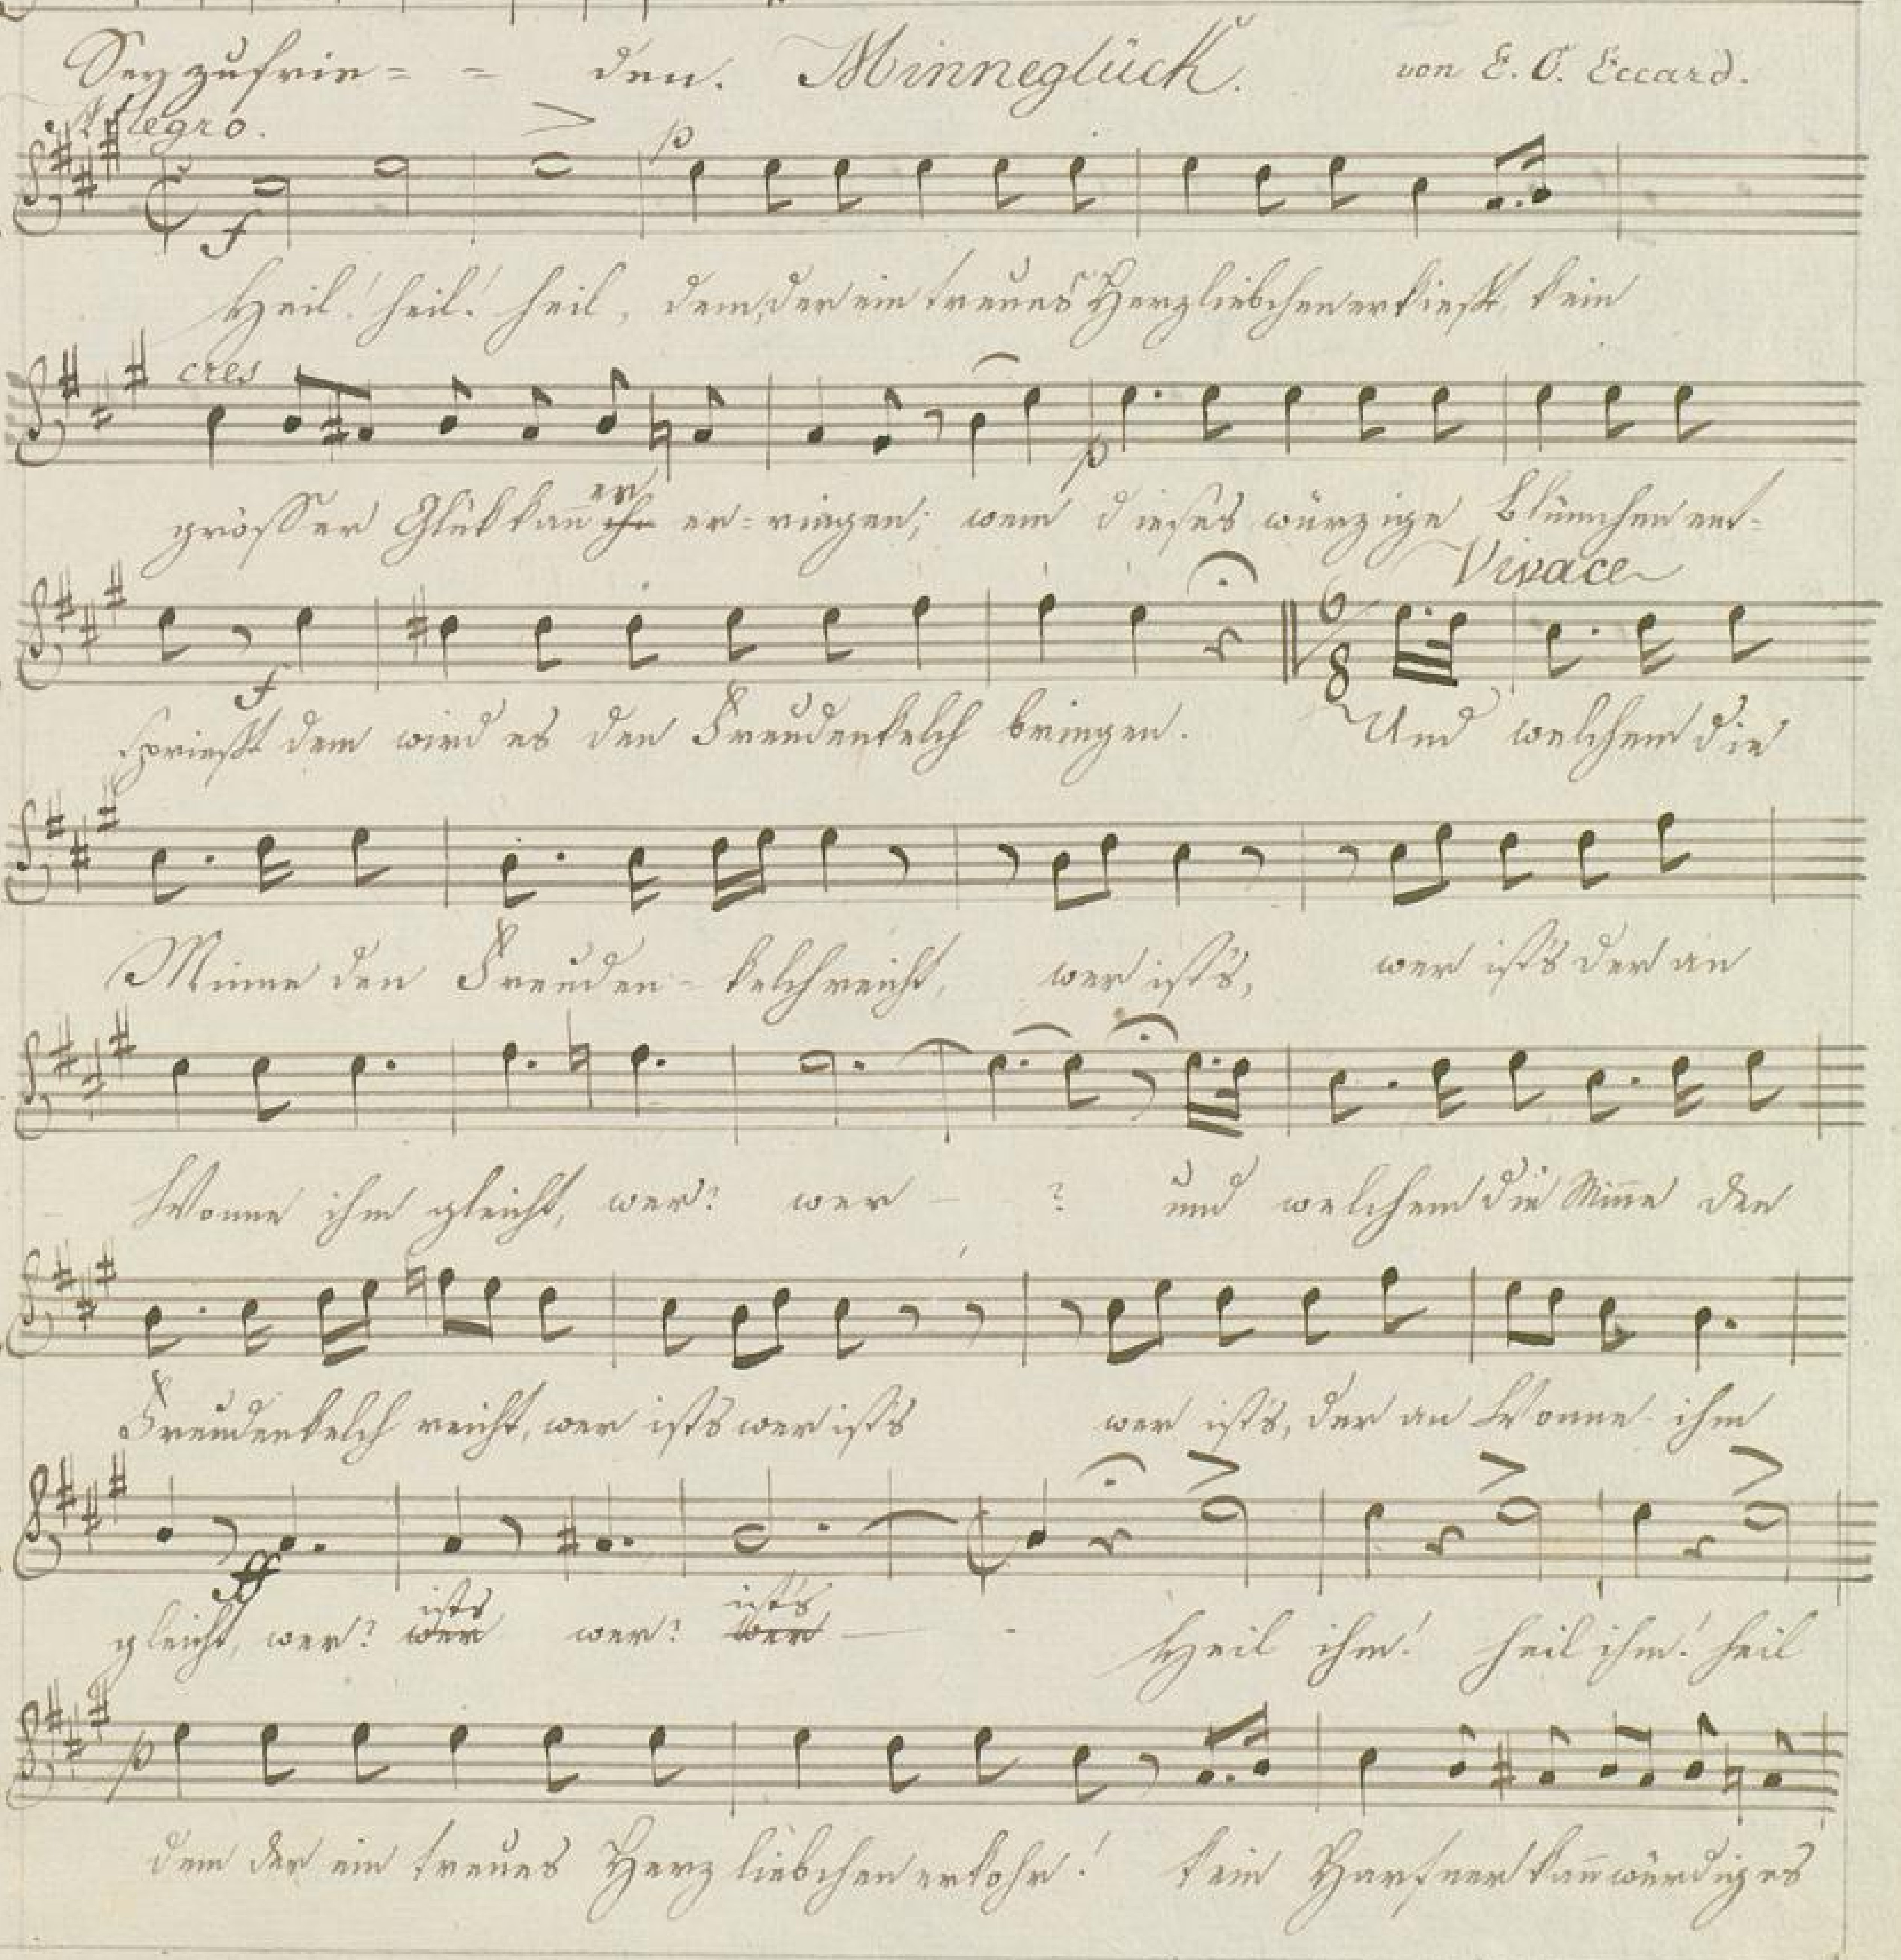 Sey zufrie= = den. Minneglück. von E. O. Eccard.
Allegro.
p
f
Heil! heil! heil, dem, der ein treues Herzliebchen erkiest, kein
cres
p
er
grösser Glük kan̄ ihn er=ringen; wem dieses würzige Blümchen ent-
Vivace
6/8
f
sprießt dem wird es den Freudenkelch bringen. Und welchem die
Minne den Freuden-kelch reicht, wer ists, wer ists der an
Wonne ihm gleicht, wer? wer – ? und welchem die Min̄e den
Freudenkelch reicht, wer ists wer ists wer ists, der an Wonne ihm
ff
ists ists
gleicht, wer? wer wer? wer – - Heil ihm! heil ihm! heil
p
dem der ein treues Herz liebchen erkohr! kein Harfner kan̄ würdiges